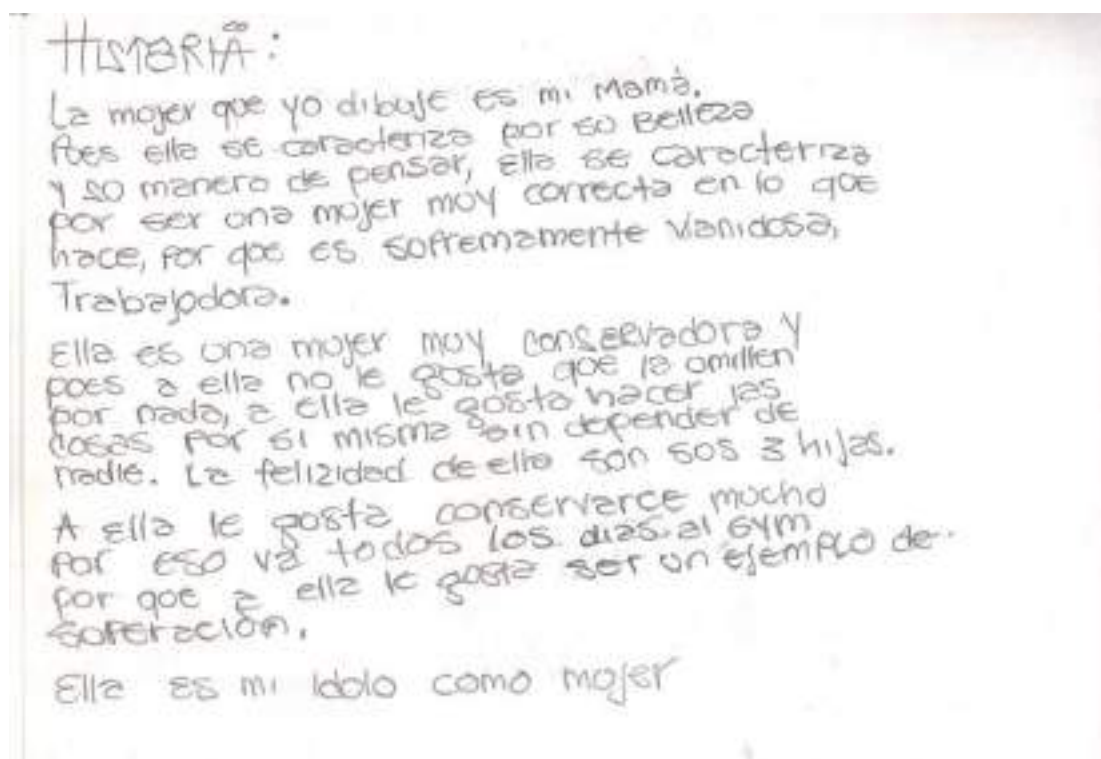 HISTORIA:
La mujer que yo dibuje es mi Mamá.
Pues ella se caracteriza por su Belleza
y su manera de pensar, Ella se caracteriza
por ser una mujer muy correcta en lo que
hace, por que es supremamente vanidosa,
Trabajadora.
Ella es una mujer muy conservadora y
pues a ella no le gusta que la omillen
por nada, a ella le gusta hacer las
cosas por si misma sin depender de
nadie. La felizidad de ella son sus 3 hijas.
A ella le gusta conservarce mucho
por eso va todos los dias al Gym
por que a ella le gusta ser un ejemplo de
superación.
Ella es mi idolo como mujer